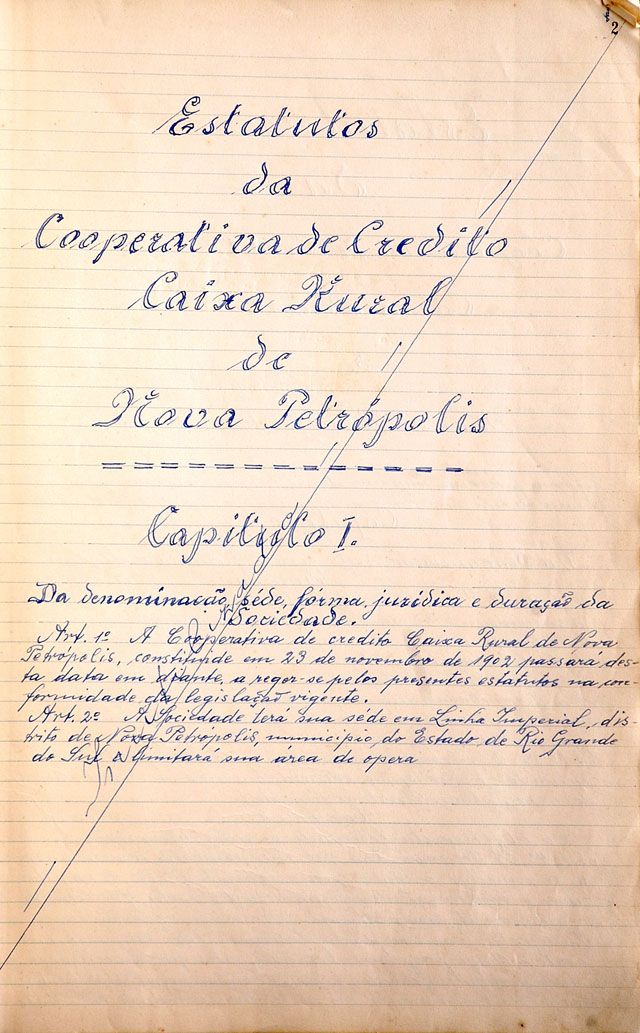 2
Estatutos
da
Cooperativa de Credito
Caixa Rural
de
Nova Petrópolis
Capitulo I.
Da denominação, séde, fórma juridica e duração da
Sociedade.
Art. 1º A Cooperativa de credito Caixa Rural de Nova
Petropolis, constituide em 23 de novembro de 1902 passara, des-
ta data em diante, a reger-se pelos presentes estatutos na con-
formidade da legislação vigente.
Art. 2º A Sociedade terá sua séde em Linha Imperial, dis-
trito de Nova Petropolis, municipio do Estado de Rio Grande
do Sul e limitará sua área de opera